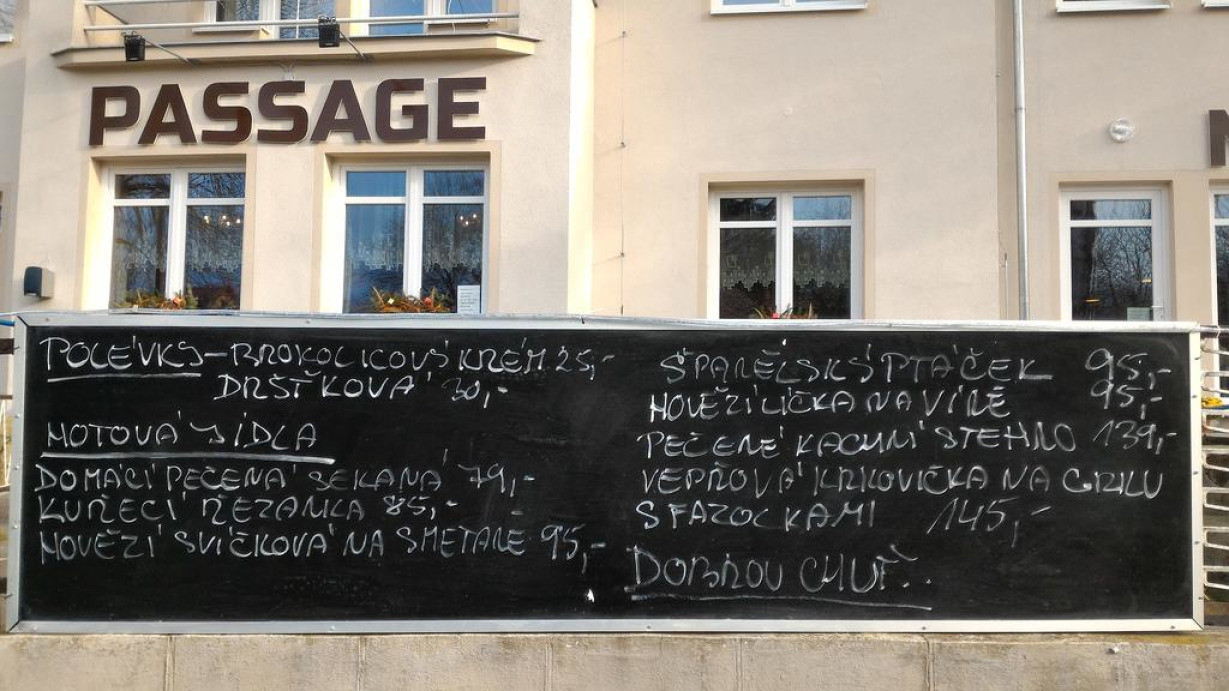 PASSAGE
POLÉVKY – BROKOLICOVÝ KRÉM 25,-
DRŠŤKOVÁ 30,-
HOTOVÁ JÍDLA
DOMÁCÍ PEČENÁ SEKANÁ 79,-
KUŘECÍ ŘEZANKA 85,-
HOVĚZÍ SVÍČKOVÁ NA SMETANĚ 95,-
ŠPANĚLSKÝ PTÁČEK 95,-
HOVĚZÍ LÍČKA NA VÍNĚ 95,-
PEČENÉ KACHNÍ STEHNO 139,-
VEPŘOVÁ KRKOVIČKA NA GRILU
S FAZOLKAMI 145,-
DOBROU CHUŤ..